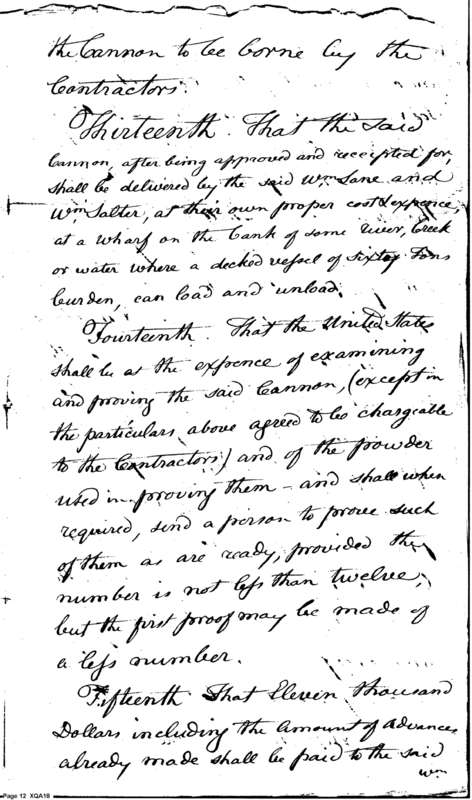 the Cannon to be borne by the
Contractors.
Thirteenth. That the said
Cannon, after being approved and receipted for,
shall be delivered by the said Wm Lane and
Wm Salter, at their own proper cost & expence,
at a wharf on the bank of some River, Creek
or water where a decked vessel of sixty Tons
burden, can load and unload.
Fourteenth. That the United States
shall be at the expence of examining
and proving the said Cannon, (except in
the particulars above agreed to be chargeable
to the Contractors) and of the powder
used in proving them - and shall when
required, send a person to prove such
of them as are ready, provided the
number is not less than twelve,
but the first proof may be made of
a less number.
Fifteenth That Eleven thousand
Dollars including the amount of advances
already made shall be paid to the said
Wm
Page 12 XQA18